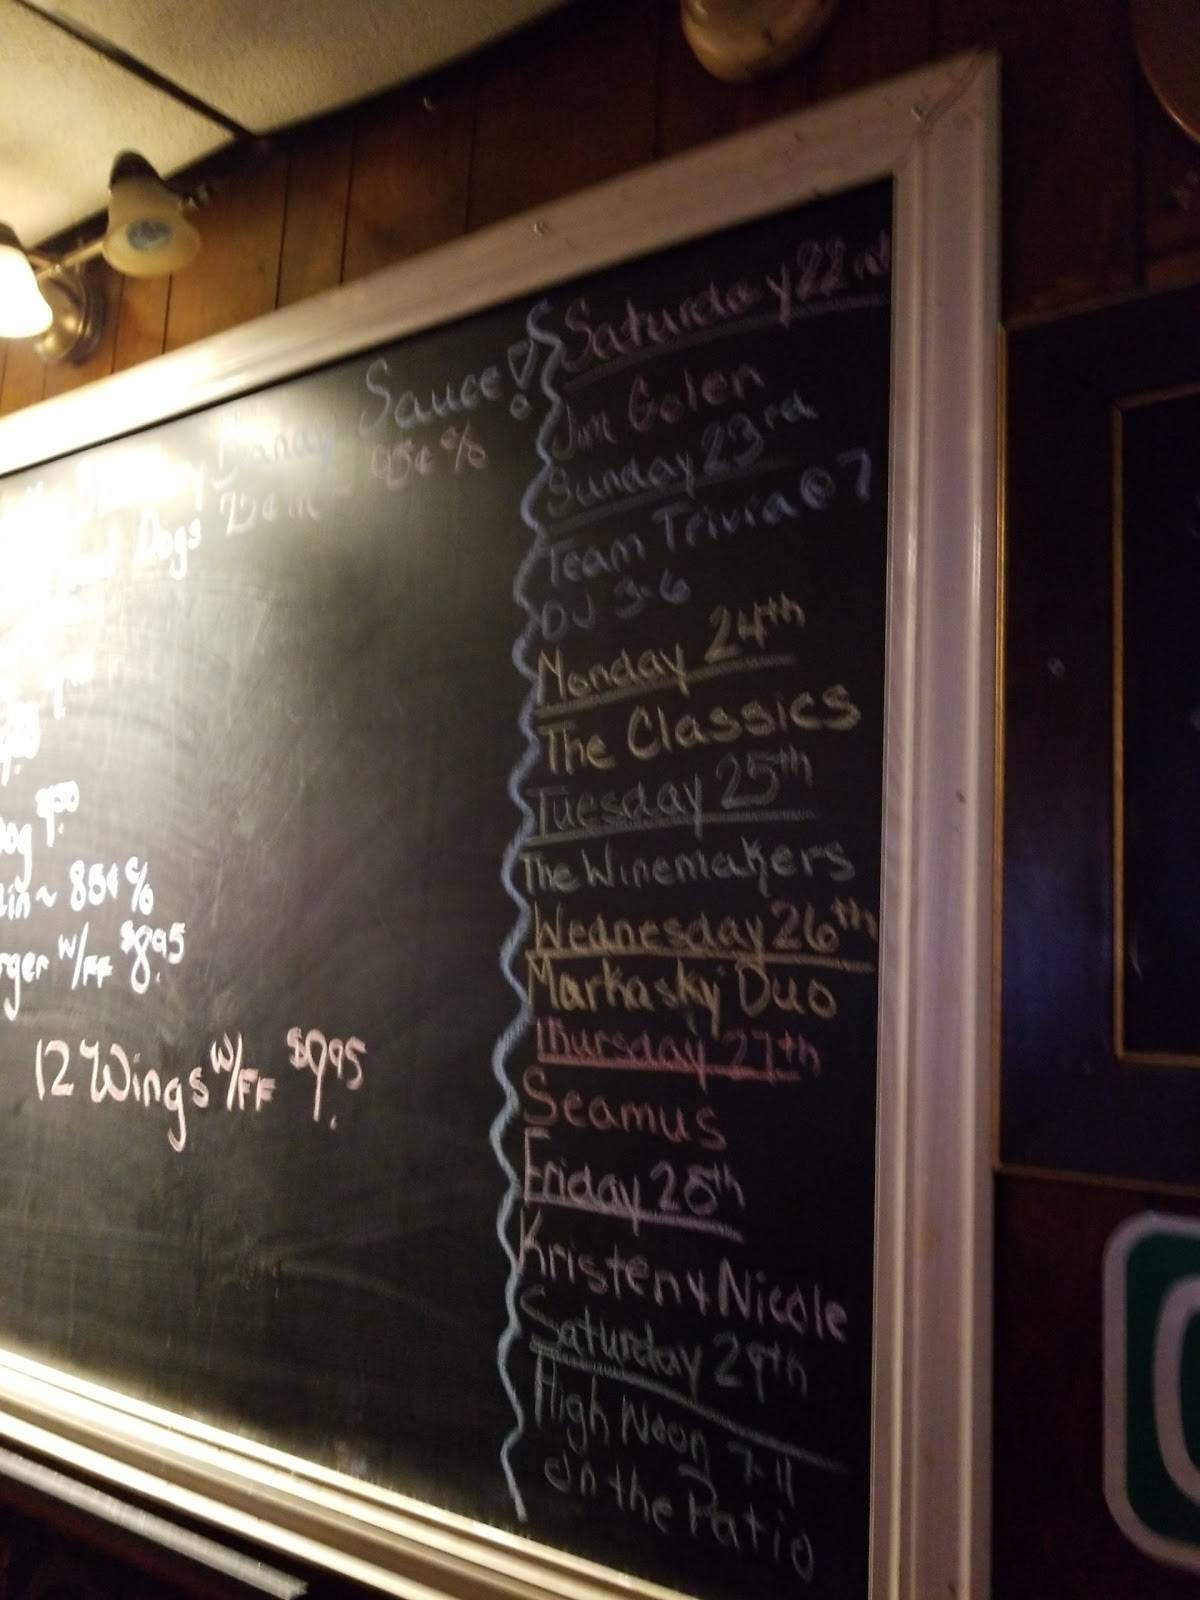 Sauce
Dogs 75¢ in ~ 95¢ c/o
Dog $1.50
in ~ 85¢ c/o
rger w/FF $8.95
12 Wings w/FF $9.95
Saturday 22nd
Jim Golen
Sunday 23rd
Team Trivia @ 7
DJ 3-6
Monday 24th
The Classics
Tuesday 25th
The Winemakers
Wednesday 26th
Markasky Duo
Thursday 27th
Seamus
Friday 28th
Kristen & Nicole
Saturday 29th
High Noon 7-11
on the Patio